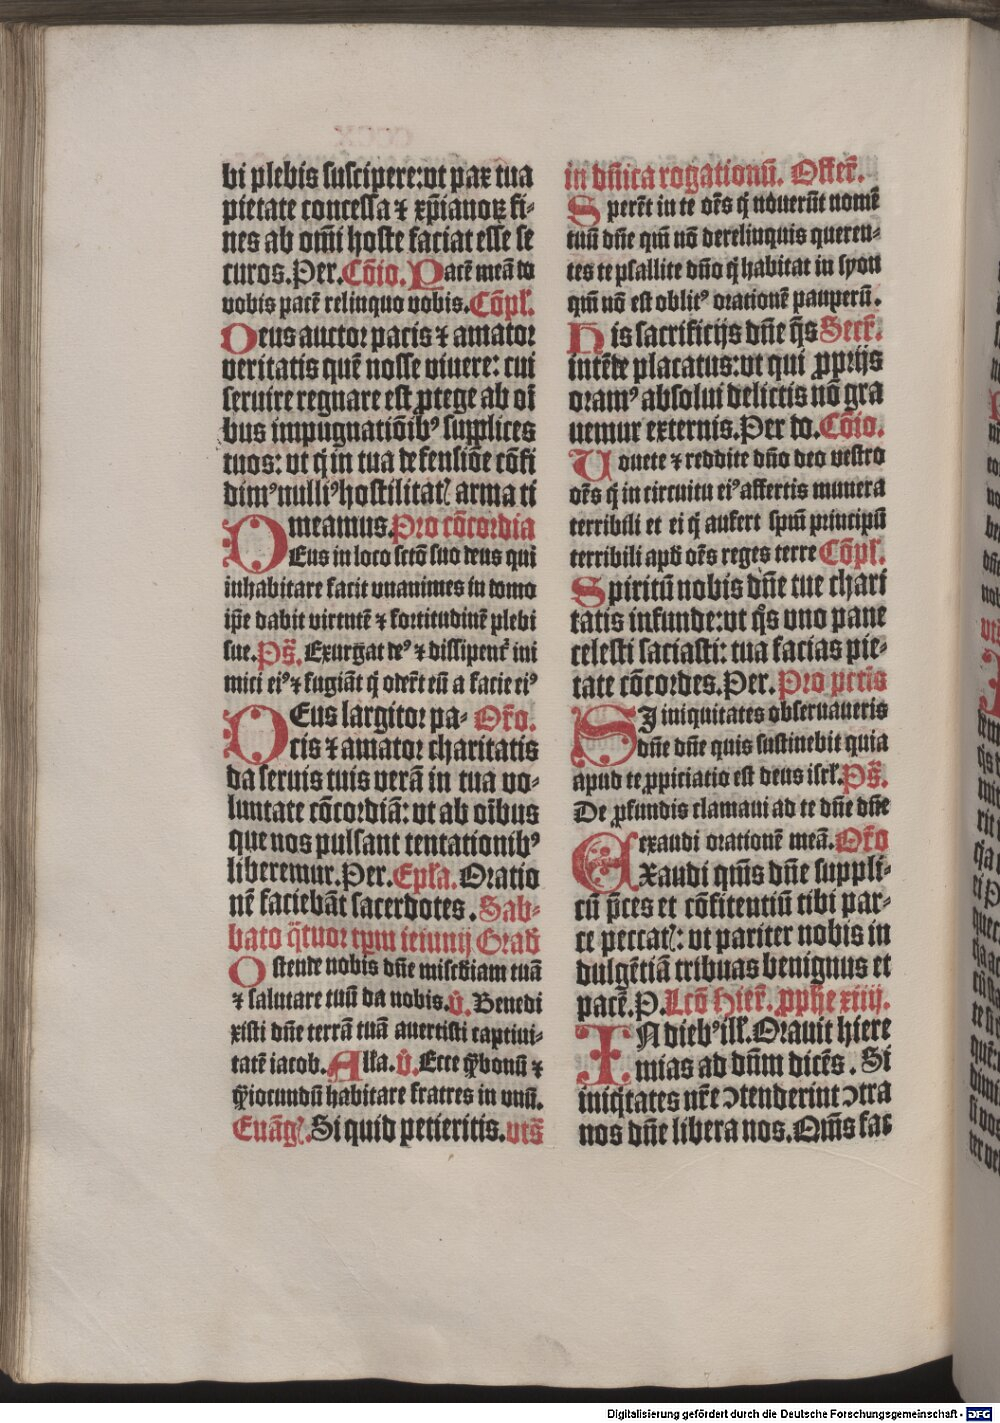 bi plebis suscipere: vt pax tua
pietate concessa ⁊ xp̄ianoꝝ fi-
nes ab om̄i hoste faciat esse se
curos. Per. Cōio. Pacē meā do
vobis pacē relinquo vobis. Cōpl̄.
Deus auctor pacis ⁊ amator
veritatis quē nosse viuere: cui
seruire regnare est ꝓtege ab oī
bus impugnatiōibꝰ supplices
tuos: vt q̄ in tua defensiōe cōfi
dimꝰ nulliꝰ hostilitatꝭ arma ti
meamus. Pro cōcordia
DEus in loco sctō suo deus qui
inhabitare facit vnanimes in domo
ip̄e dabit virtutē ⁊ fortitudinē plebi
sue. Ps̄. Exurgat deꝰ ⁊ dissipent᷑ ini
mici eiꝰ ⁊ fugiāt q̄ oder̄t eū a facie eiꝰ
DEus largitor pa- Or̄o.
cis ⁊ amator charitatis
da seruis tuis verā in tua vo-
luntate cōcordiā: vt ab oībus
que nos pulsant tentationibꝰ
liberemur. Per. Epl̄a. Oratio
nē faciebāt sacerdotes. Sab-
bato q̄tuor tp̄m ieiunij Grad̄
Ostende nobis dn̄e misc̄diam tuā
⁊ salutare tuū da nobis. V̄. Benedi
xisti dn̄e terrā tuā auertisti captiui-
tatē iacob. Alla. V̄. Ecce q̄ꝫ bonū ⁊
q̄ꝫ iocundū habitare fratres in vnū.
Euāgꝭ. Si quid petieritis. vts̄
in dn̄ica rogationū. Offer̄.
Sperēt in te oēs q̄ nouerūt nomē
tuū dn̄e qm̄ nō derelinquis queren-
tes te psallite dn̄o q̄ habitat in syon
qm̄ nō est oblitꝰ orationē pauperū.
His sacrificijs dn̄e q̄s Secr̄.
intēde placatus: vt qui ꝓprijs
oramꝰ absolui delictis nō gra
uemur externis. Per do. Cōio.
Vouete ⁊ reddite dn̄o deo vestro
oēs q̄ in circuitu eiꝰ affertis munera
terribili et ei q̄ aufert spm̄ principū
terribili apd̄ oēs reges terre Cōpl̄.
Spiritū nobis dn̄e tue chari
tatis infunde: vt q̄s vno pane
celesti saciasti: tua facias pie-
tate cōcordes. Per. Pro pctīs
SI iniquitates obseruaueris
dn̄e dn̄e quis sustinebit quia
apud te ꝓpiciatio est deus isrl̄. Ps̄.
De ꝓfundis clamaui ad te dn̄e dn̄e
exaudi orationē meā. Or̄o
EXaudi qm̄s dn̄e suppli-
cū p̄ces et cōfitentiū tibi par-
ce peccatꝭ: vt pariter nobis in
dulgētiā tribuas benignus et
pacē. P. Lcō Hier̄. ꝓph̄e xiiij.
IN diebꝰ ill̄. Orauit hiere
mias ad dn̄m dicēs. Si
iniq̄tates nr̄e ↄtenderint ↄtra
nos dn̄e libera nos. Om̄s fac
Digitalisierung gefördert durch die Deutsche Forschungsgemeinschaft - DFG